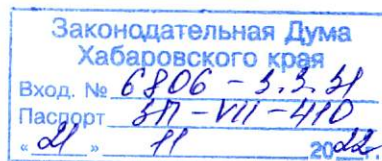 Законодательная Дума
Хабаровского края
Вход. № 6806 - 3.3.31
Паспорт ЗП - VII - 410
« 21 » 11 2022